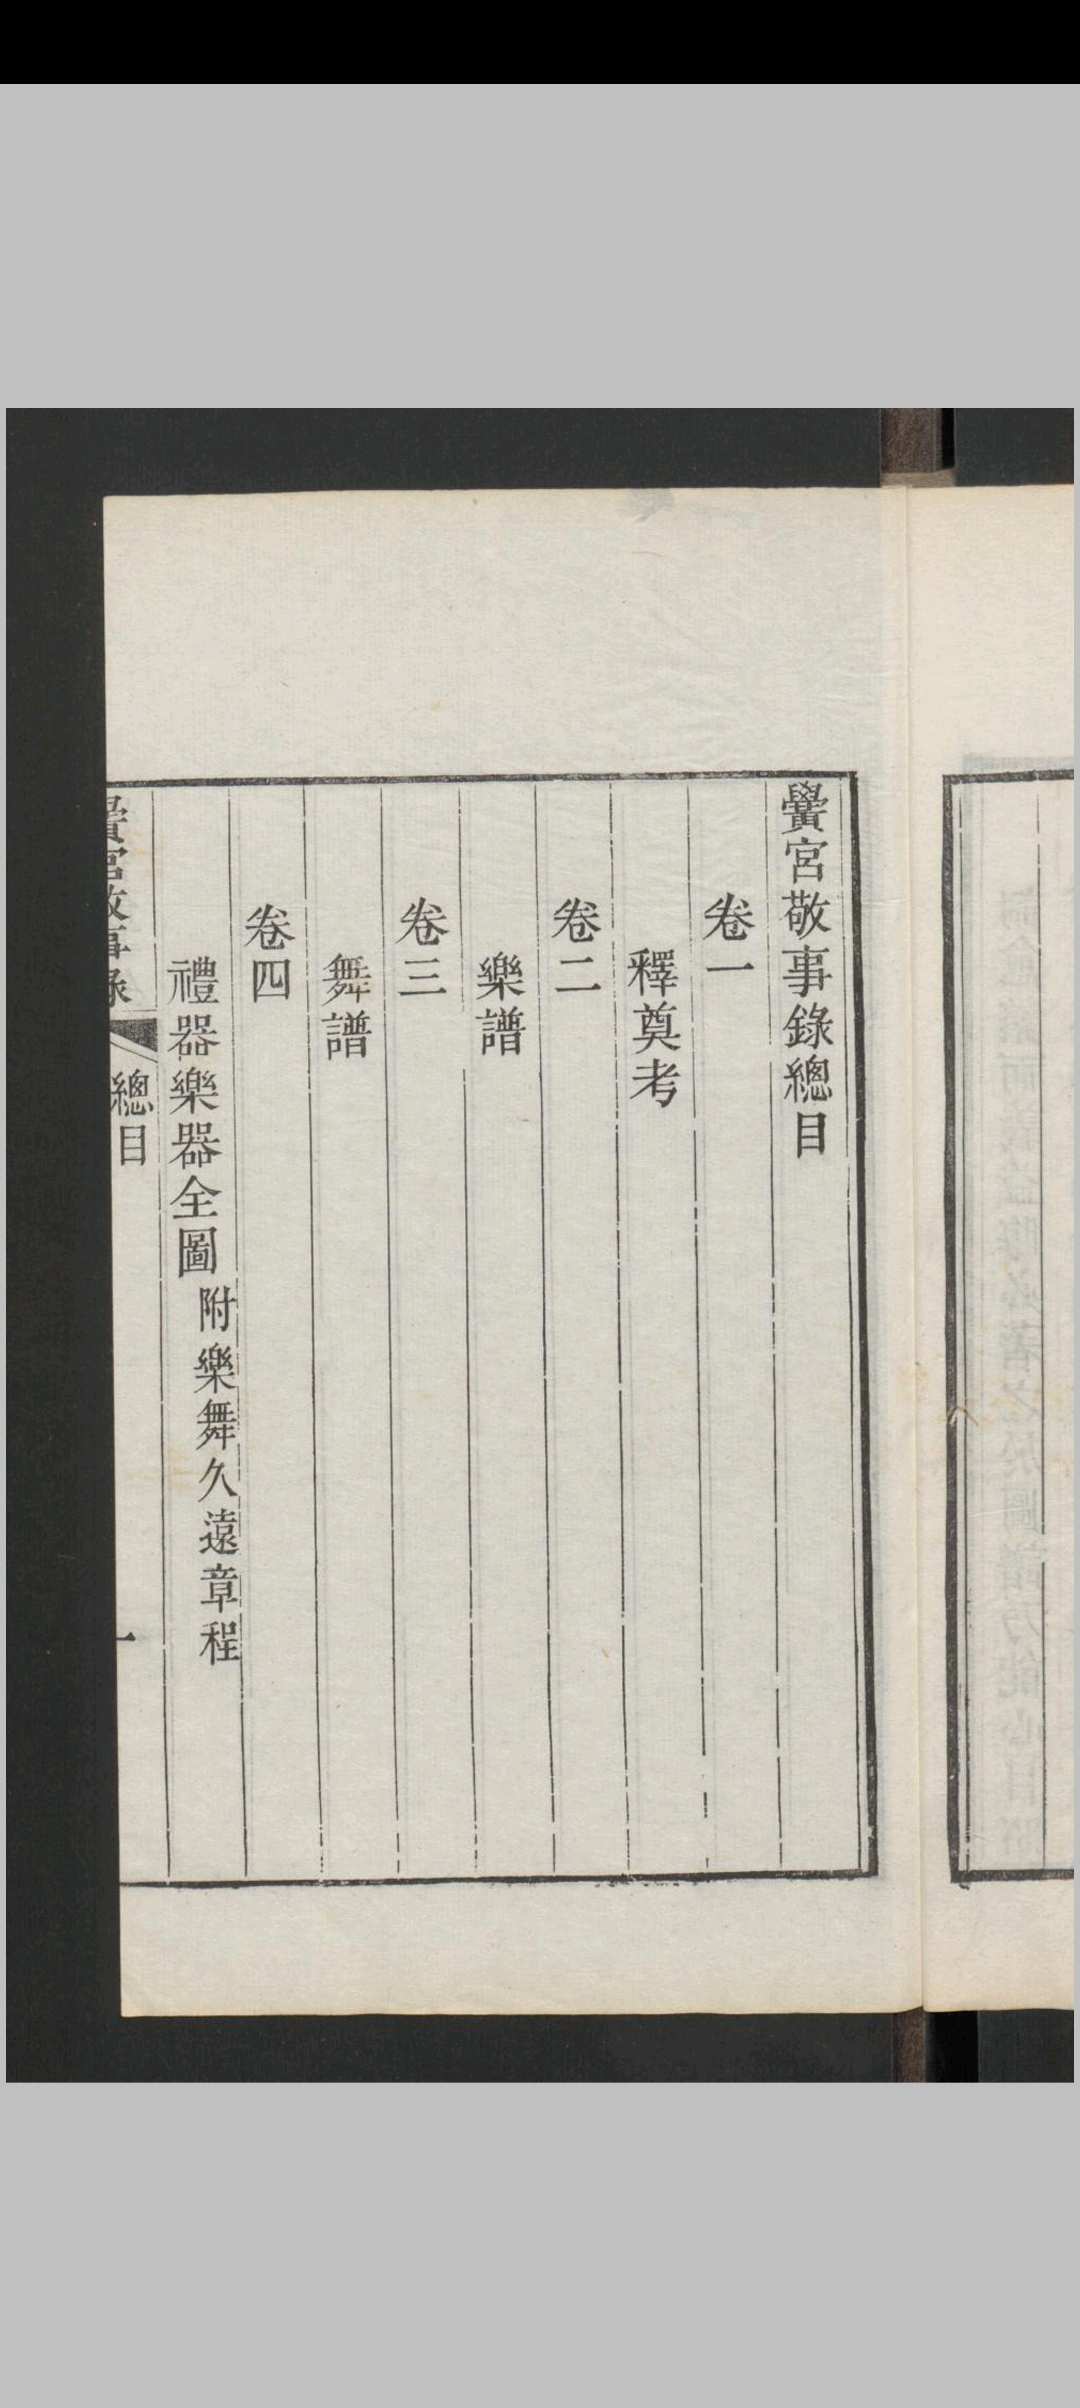 黌宮敬事錄總目
卷一
釋奠考
卷二
樂譜
卷三
舞譜
卷四
禮器樂器全圖附樂舞久遠章程
黌宮敬事錄 總目 一